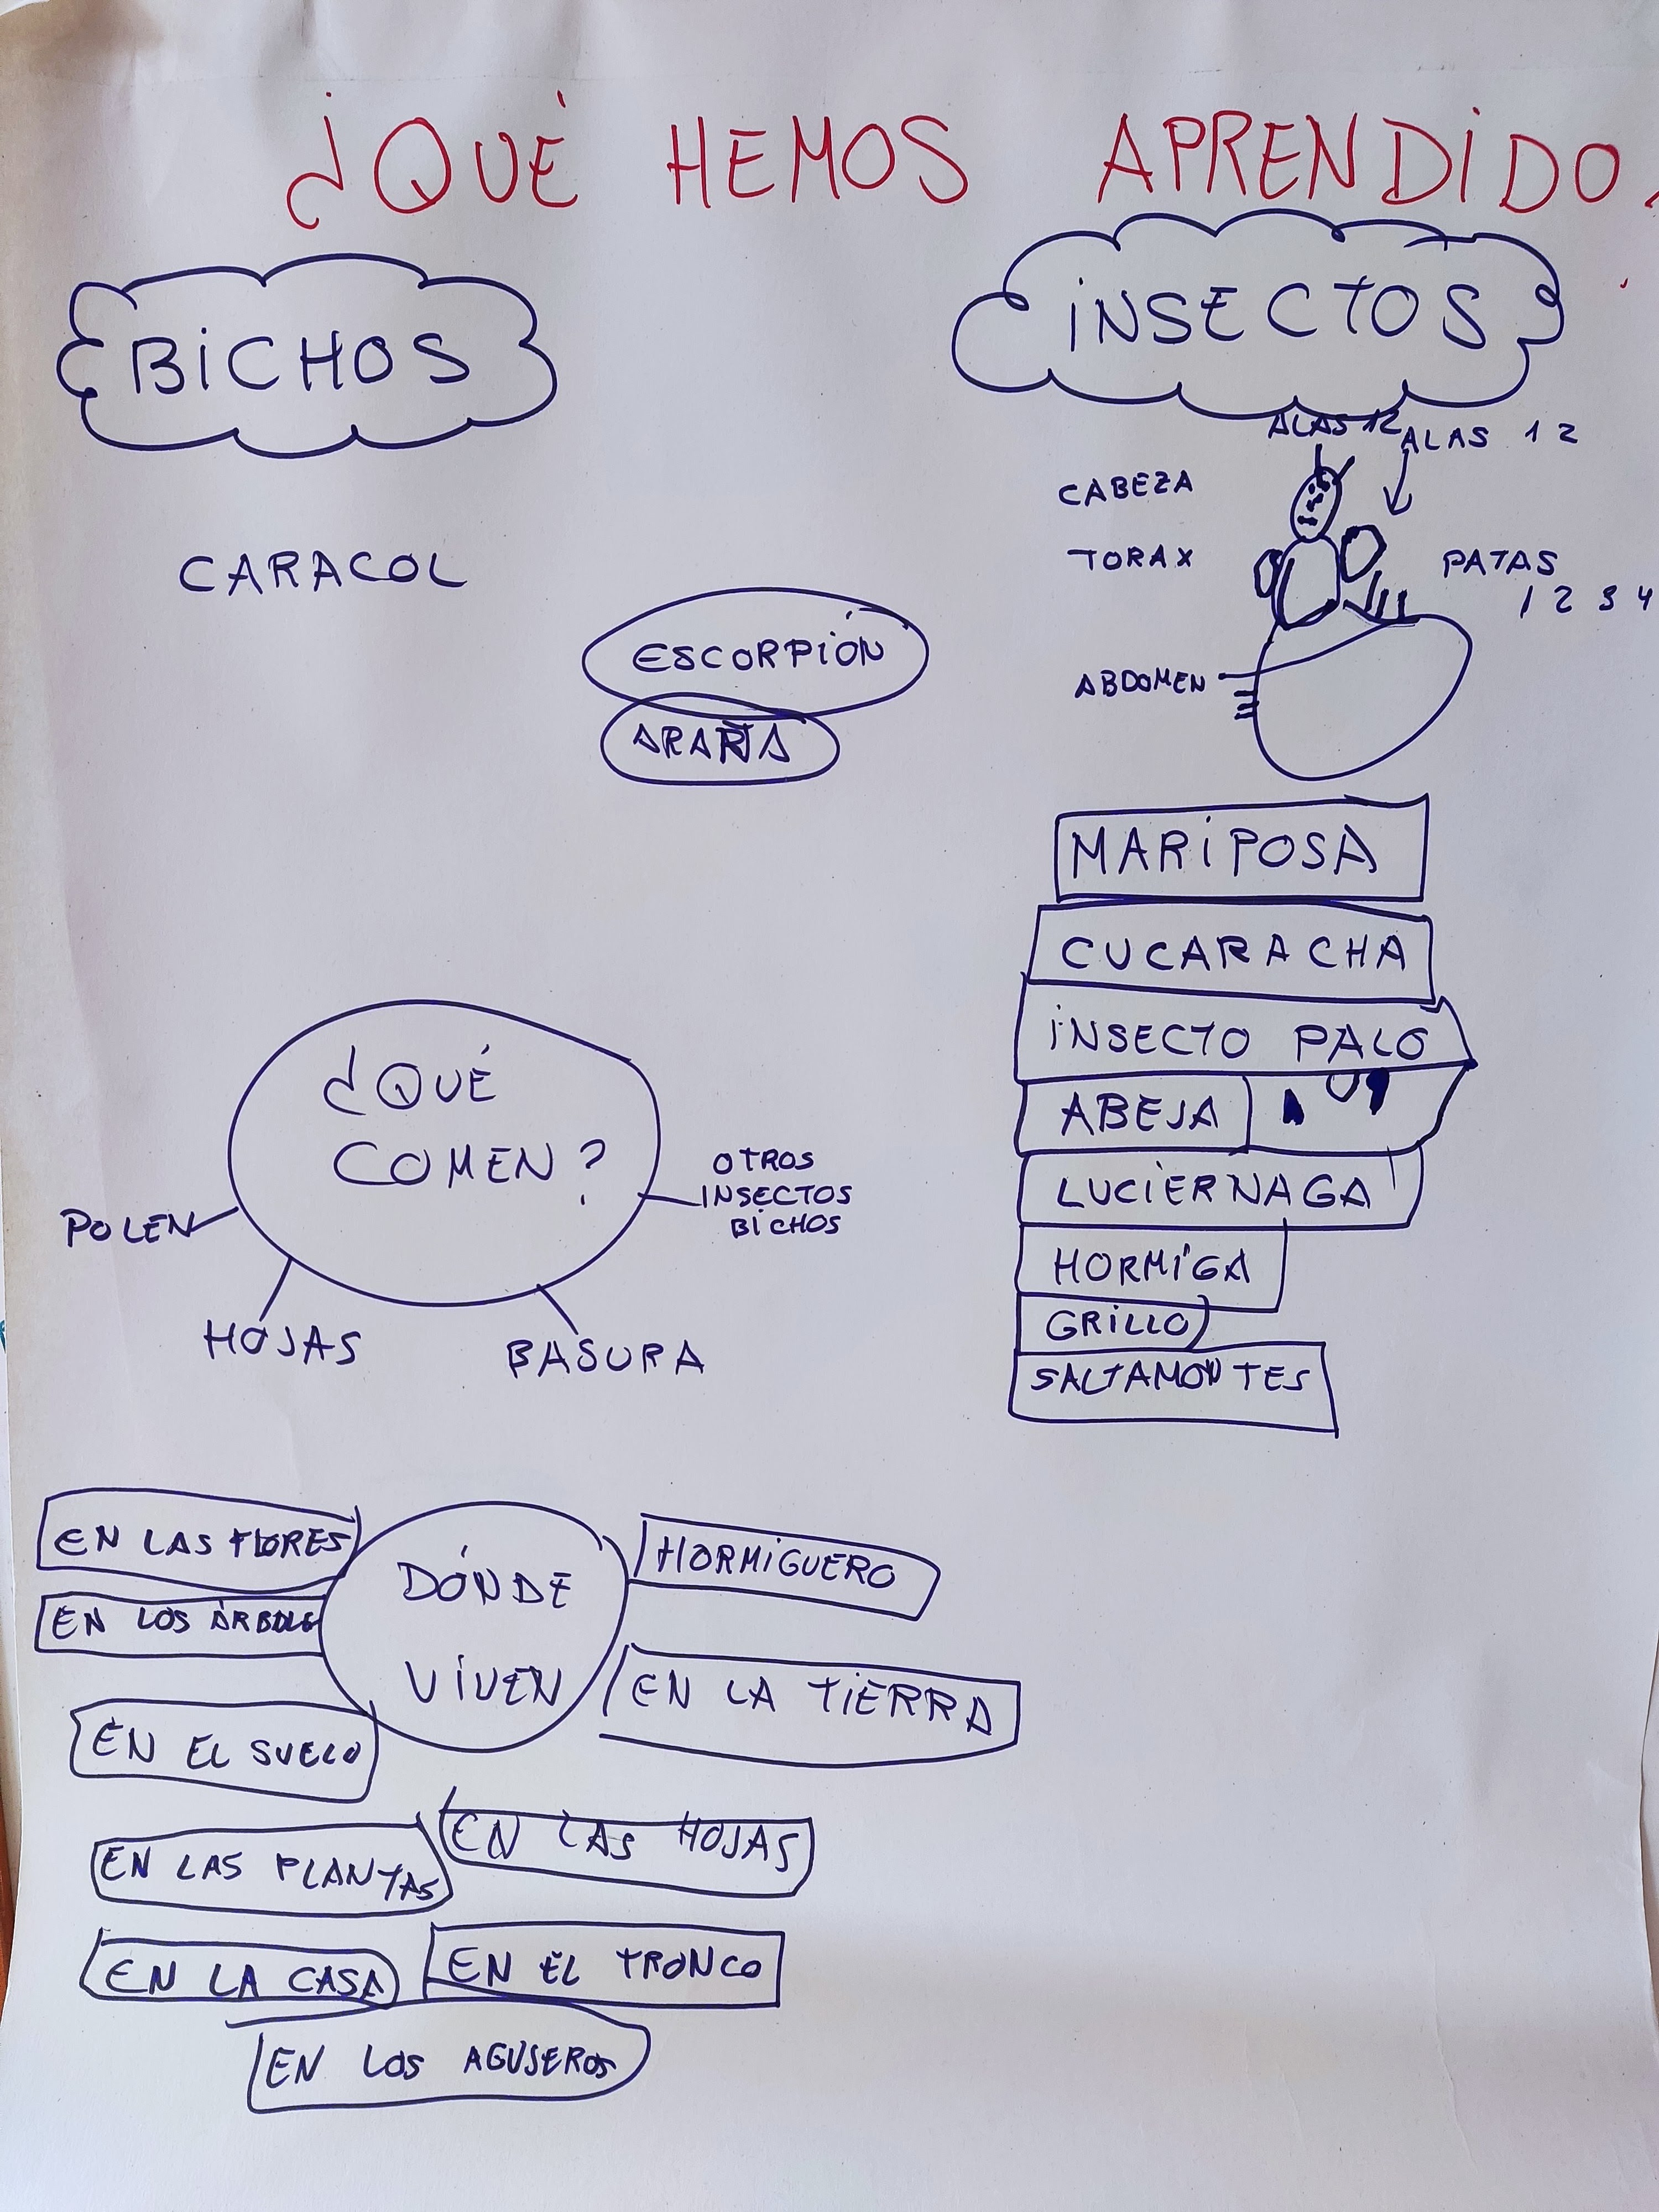 ¿QUÉ HEMOS APRENDIDO
BICHOS
CARACOL
ESCORPIÓN
ARAÑA
INSECTOS
ALAS 12
ALAS 1 2
CABEZA
TORAX
PATAS
1 2 3 4
ABDOMEN
MARIPOSA
CUCARACHA
INSECTO PALO
ABEJA
LUCIERNAGA
HORMIGA
GRILLO
SALTAMONTES
¿QUÉ
COMEN?
POLEN
HOJAS
BASURA
OTROS
INSECTOS
BICHOS
DÓNDE
VIVEN
EN LAS FLORES
EN LOS ÁRBOLES
EN EL SUELO
EN LAS PLANTAS
EN LA CASA
HORMIGUERO
EN LA TIERRA
EN LAS HOJAS
EN EL TRONCO
EN LOS AGUJEROS